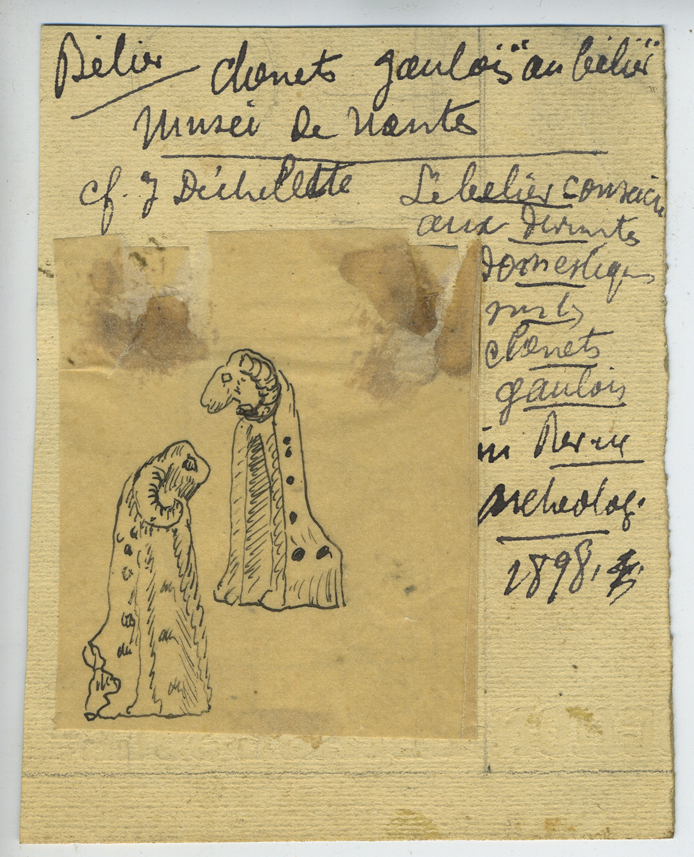 Bélier chenets gaulois "au bélier"
Musée de Nantes
cf. J Déchelette Le bélier consacré
aux divinités
domestiques
sur les
chenets
gaulois
in Revue
Archéolog.
1898,